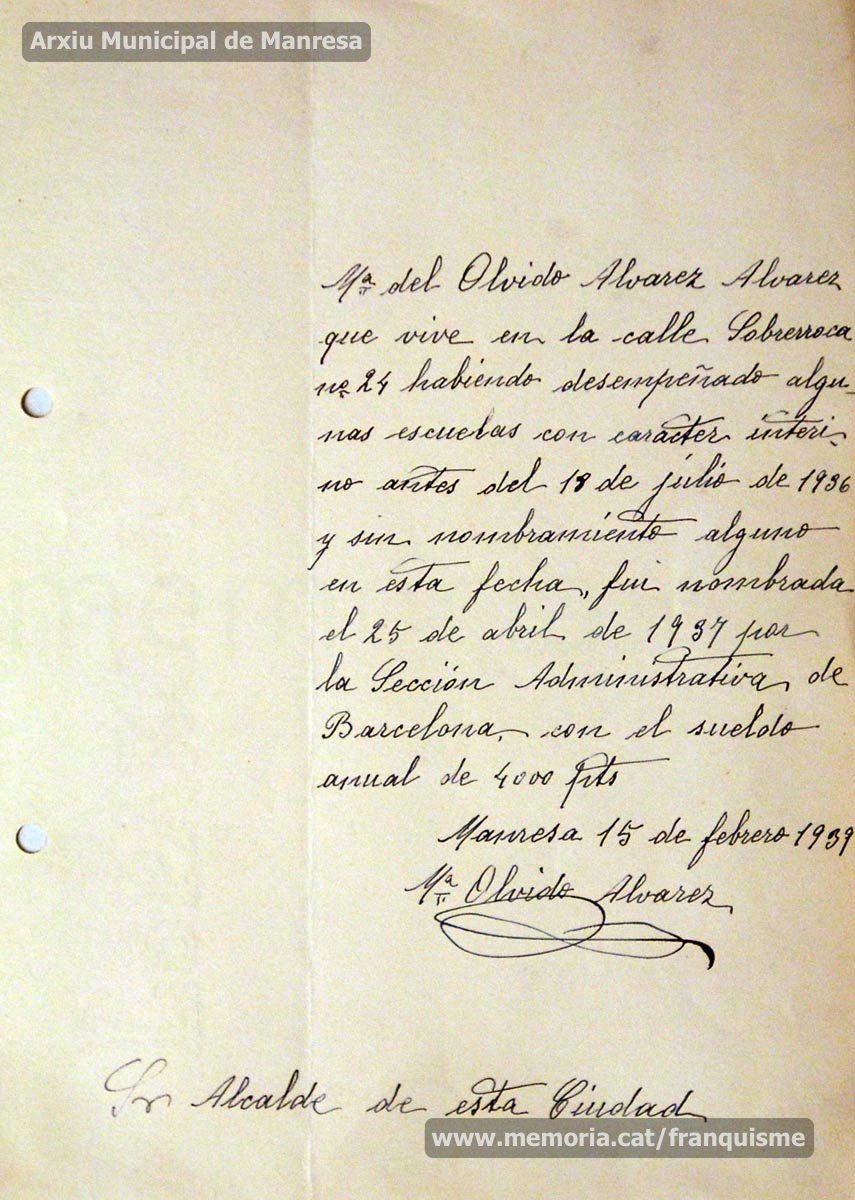 Arxiu Municipal de Manresa
Mª del Olvido Alvarez Alvarez
que vive en la calle Sobrerroca
nº 24 habiendo desempeñado algu-
nas escuelas con carácter interi-
no antes del 18 de julio de 1936
y sin nombramiento alguno
en esta fecha, fui nombrada
el 25 de abril de 1937 por
la Sección Administrativa de
Barcelona, con el sueldo
anual de 4000 pts
Manresa 15 de febrero 1939
Mª Olvido Alvarez
Sr Alcalde de esta Ciudad
www.memoria.cat/franquisme